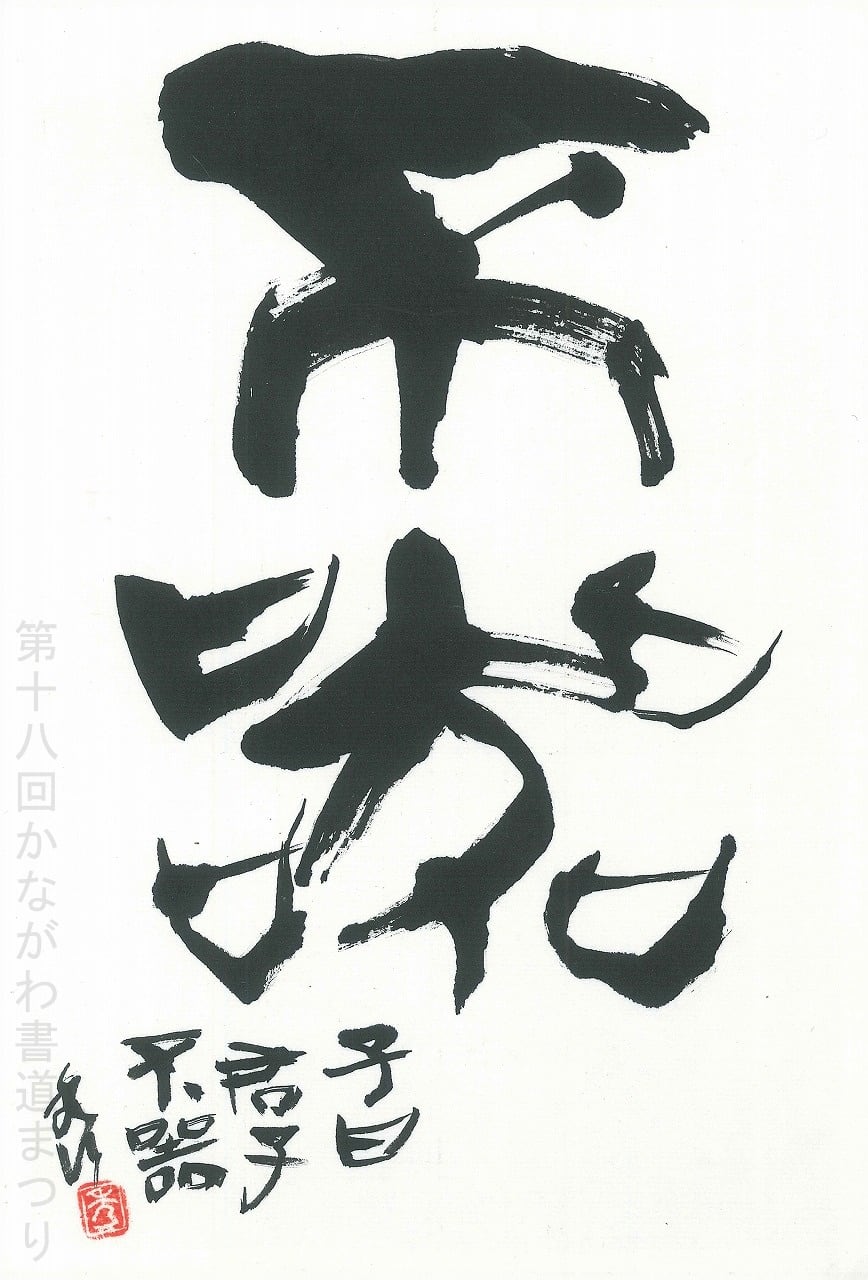 不器
子曰
君子
不器
第十八回かながわ書道まつり